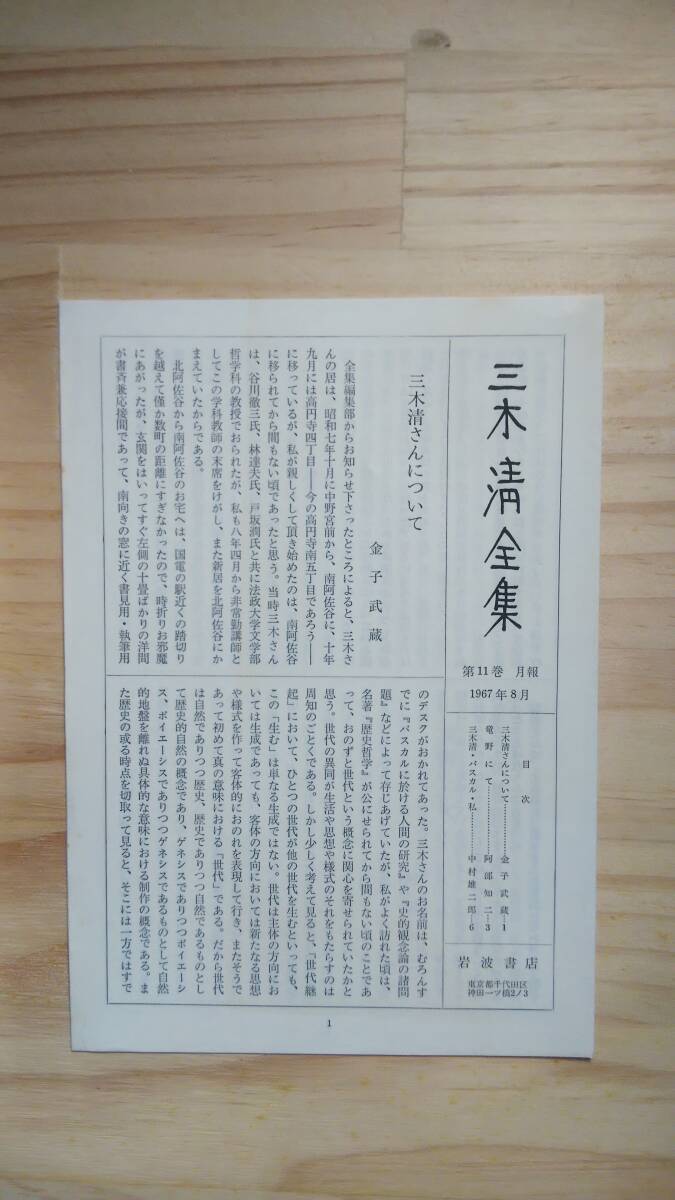 三木清全集
第11巻 月報
1967年8月
目次
三木清さんについて…………金子武蔵…1
竜野にて…………阿部知二…3
三木清・パスカル・私…………中村雄二郎…6
岩波書店
東京都千代田区
神田一ツ橋2ノ3
三木清さんについて
金子武蔵
全集編集部からお知らせ下さったところによると、三木さ
んの居は、昭和七年十月に中野宮前から、南阿佐谷に、十年
九月には高円寺四丁目――今の高円寺南五丁目であろう――
に移っているが、私が親しくして頂き始めたのは、南阿佐谷
に移られてから間もない頃であったと思う。当時三木さん
は、谷川徹三氏、林達夫氏、戸坂潤氏と共に法政大学文学部
哲学科の教授でおられたが、私も八年四月から非常勤講師と
してこの学科教師の末席をけがし、また新居を北阿佐谷にか
まえていたからである。
北阿佐谷から南阿佐谷のお宅へは、国電の駅近くの踏切り
を越えて僅か数町の距離にすぎなかったので、時折りお邪魔
にあがったが、玄関をはいってすぐ左側の十畳ばかりの洋間
が書斉兼応接間であって、南向きの窓に近く書見用・執筆用
のデスクがおかれてあった。三木さんのお名前は、むろんす
でに『パスカルに於ける人間の研究』や『史的観念論の諸問
題』などによって存じあげていたが、私がよく訪れた頃は、
名著『歴史哲学』が公にせられてから間もない頃のことであ
って、おのずと世代という概念に関心を寄せられていたかと
思う。世代の異同が生活や思想や様式のそれをもたらすのは
周知のごとくである。しかし少しく考えて見ると、「世代継
起」において、ひとつの世代が他の世代を生むといっても、
この「生む」は単なる生成ではない。世代は主体の方向にお
いては生成であっても、客体の方向においては新たなる思想
や様式を作って客体的におのれを表現して行き、またそうで
あって初めて真の意味における「世代」である。だから世代
は自然でありつつ歴史、歴史でありつつ自然であるものとし
て歴史的自然の概念であり、ゲネシスでありつつポイエーシ
ス、ポイエーシスでありつつゲネシスであるものとして自然
的地盤を離れぬ具体的な意味における制作の概念である。ま
た歴史の或る時点を切取って見ると、そこには一方ではすで
1